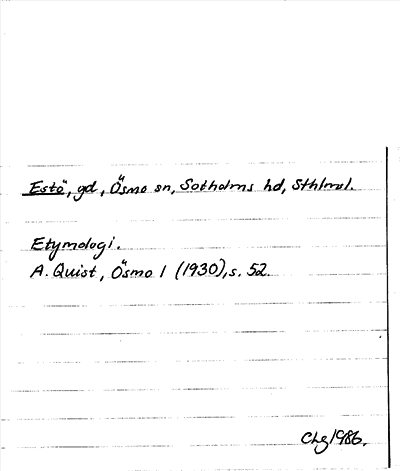 Estö, gd, Ösmo sn, Sotholms hd, Sthlmsl.
Etymologi.
A. Quist, Ösmo 1 (1930), s. 52.
CLg 1986.